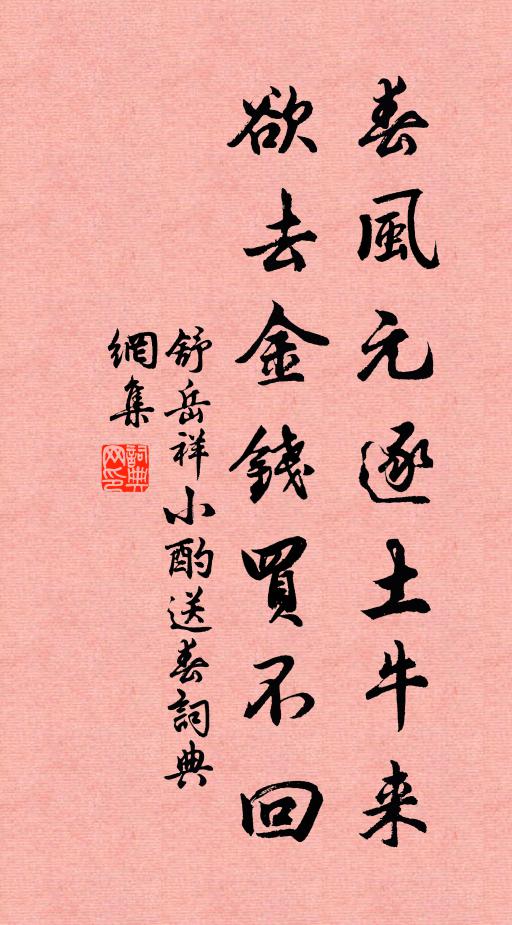 春風元逐土牛来
欲去金錢買不回
舒岳祥小酌送春詞典
網集
詞典
网印